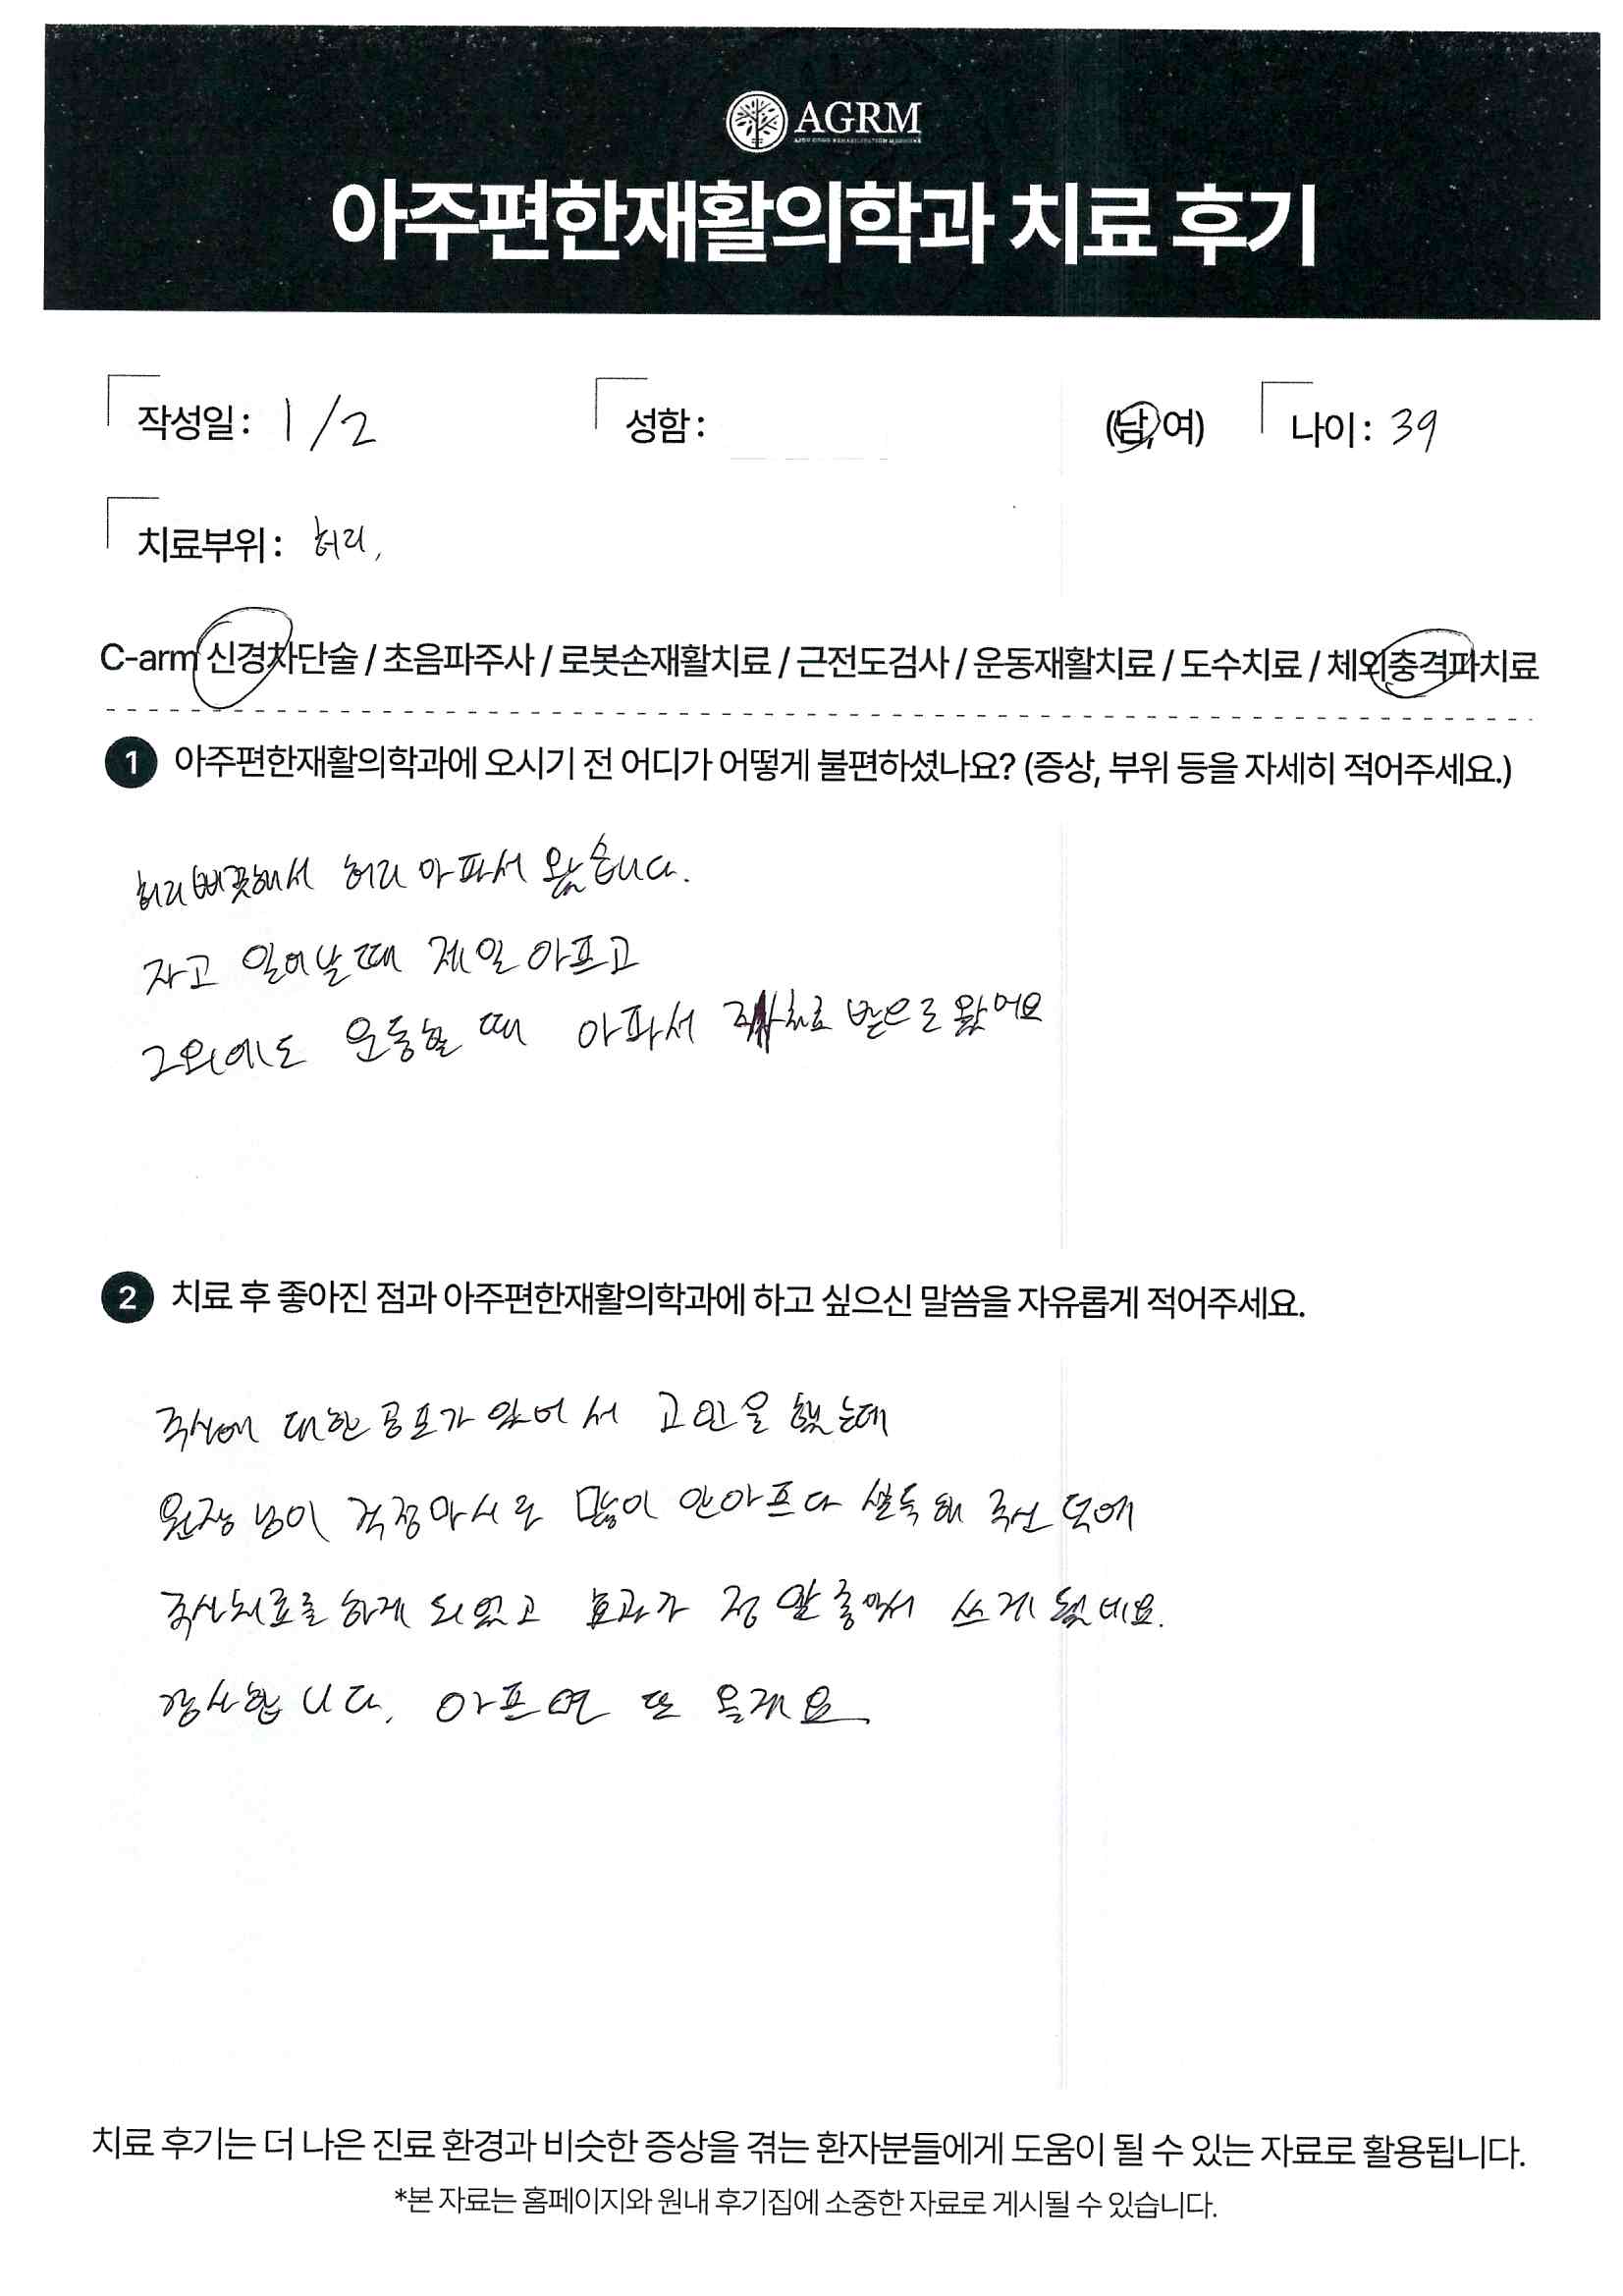 AGRM
아주편한재활의학과 치료 후기
작성일: 1/2 성함: (남, 여) 나이: 39
치료부위: 허리,
C-arm 신경차단술 / 초음파주사 / 로봇손재활치료 / 근전도검사 / 운동재활치료 / 도수치료 / 체외충격파치료
1 아주편한재활의학과에 오시기 전 어디가 어떻게 불편하셨나요? (증상, 부위 등을 자세히 적어주세요.)
허리삐끗해서 허리 아파서 왔습니다.
자고 일어날때 제일 아프고
그외에도 운동할 때 아파서 치료 받으로 왔어요
2 치료 후 좋아진 점과 아주편한재활의학과에 하고 싶으신 말씀을 자유롭게 적어주세요.
주사에 대한 공포가 있어서 고민을 했는데
원장님이 걱정마시로 많이 안아프다 설득해 주신 덕에
주사치료를 하게 되었고 효과가 정말 좋아서 쓰게 됬네요.
감사합니다. 아프면 또 올게요
치료 후기는 더 나은 진료 환경과 비슷한 증상을 겪는 환자분들에게 도움이 될 수 있는 자료로 활용됩니다.
*본 자료는 홈페이지와 원내 후기집에 소중한 자료로 게시될 수 있습니다.